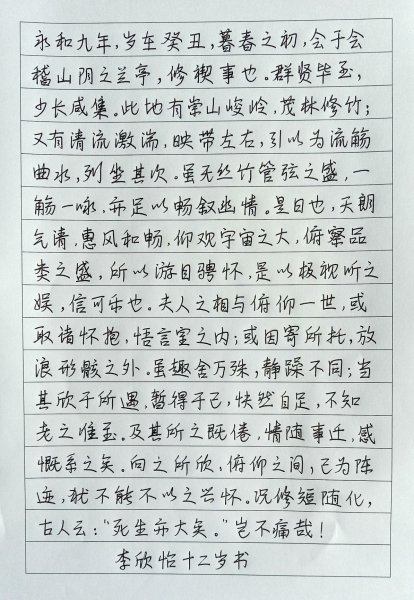 永和九年，岁在癸丑，暮春之初，会于会
稽山阴之兰亭，修禊事也。群贤毕至，
少长咸集。此地有崇山峻岭，茂林修竹；
又有清流激湍，映带左右，引以为流觞
曲水，列坐其次。虽无丝竹管弦之盛，一
觞一咏，亦足以畅叙幽情。是日也，天朗
气清，惠风和畅，仰观宇宙之大，俯察品
类之盛，所以游目骋怀，足以极视听之
娱，信可乐也。夫人之相与俯仰一世，或
取诸怀抱，悟言室之内；或因寄所托，放
浪形骸之外。虽趣舍万殊，静躁不同；当
其欣于所遇，暂得于己，快然自足，不知
老之将至。及其所之既倦，情随事迁，感
慨系之矣。向之所欣，俯仰之间，已为陈
迹，犹不能不以之兴怀。况修短随化，
古人云：“死生亦大矣。”岂不痛哉！
李欣怡十二岁书